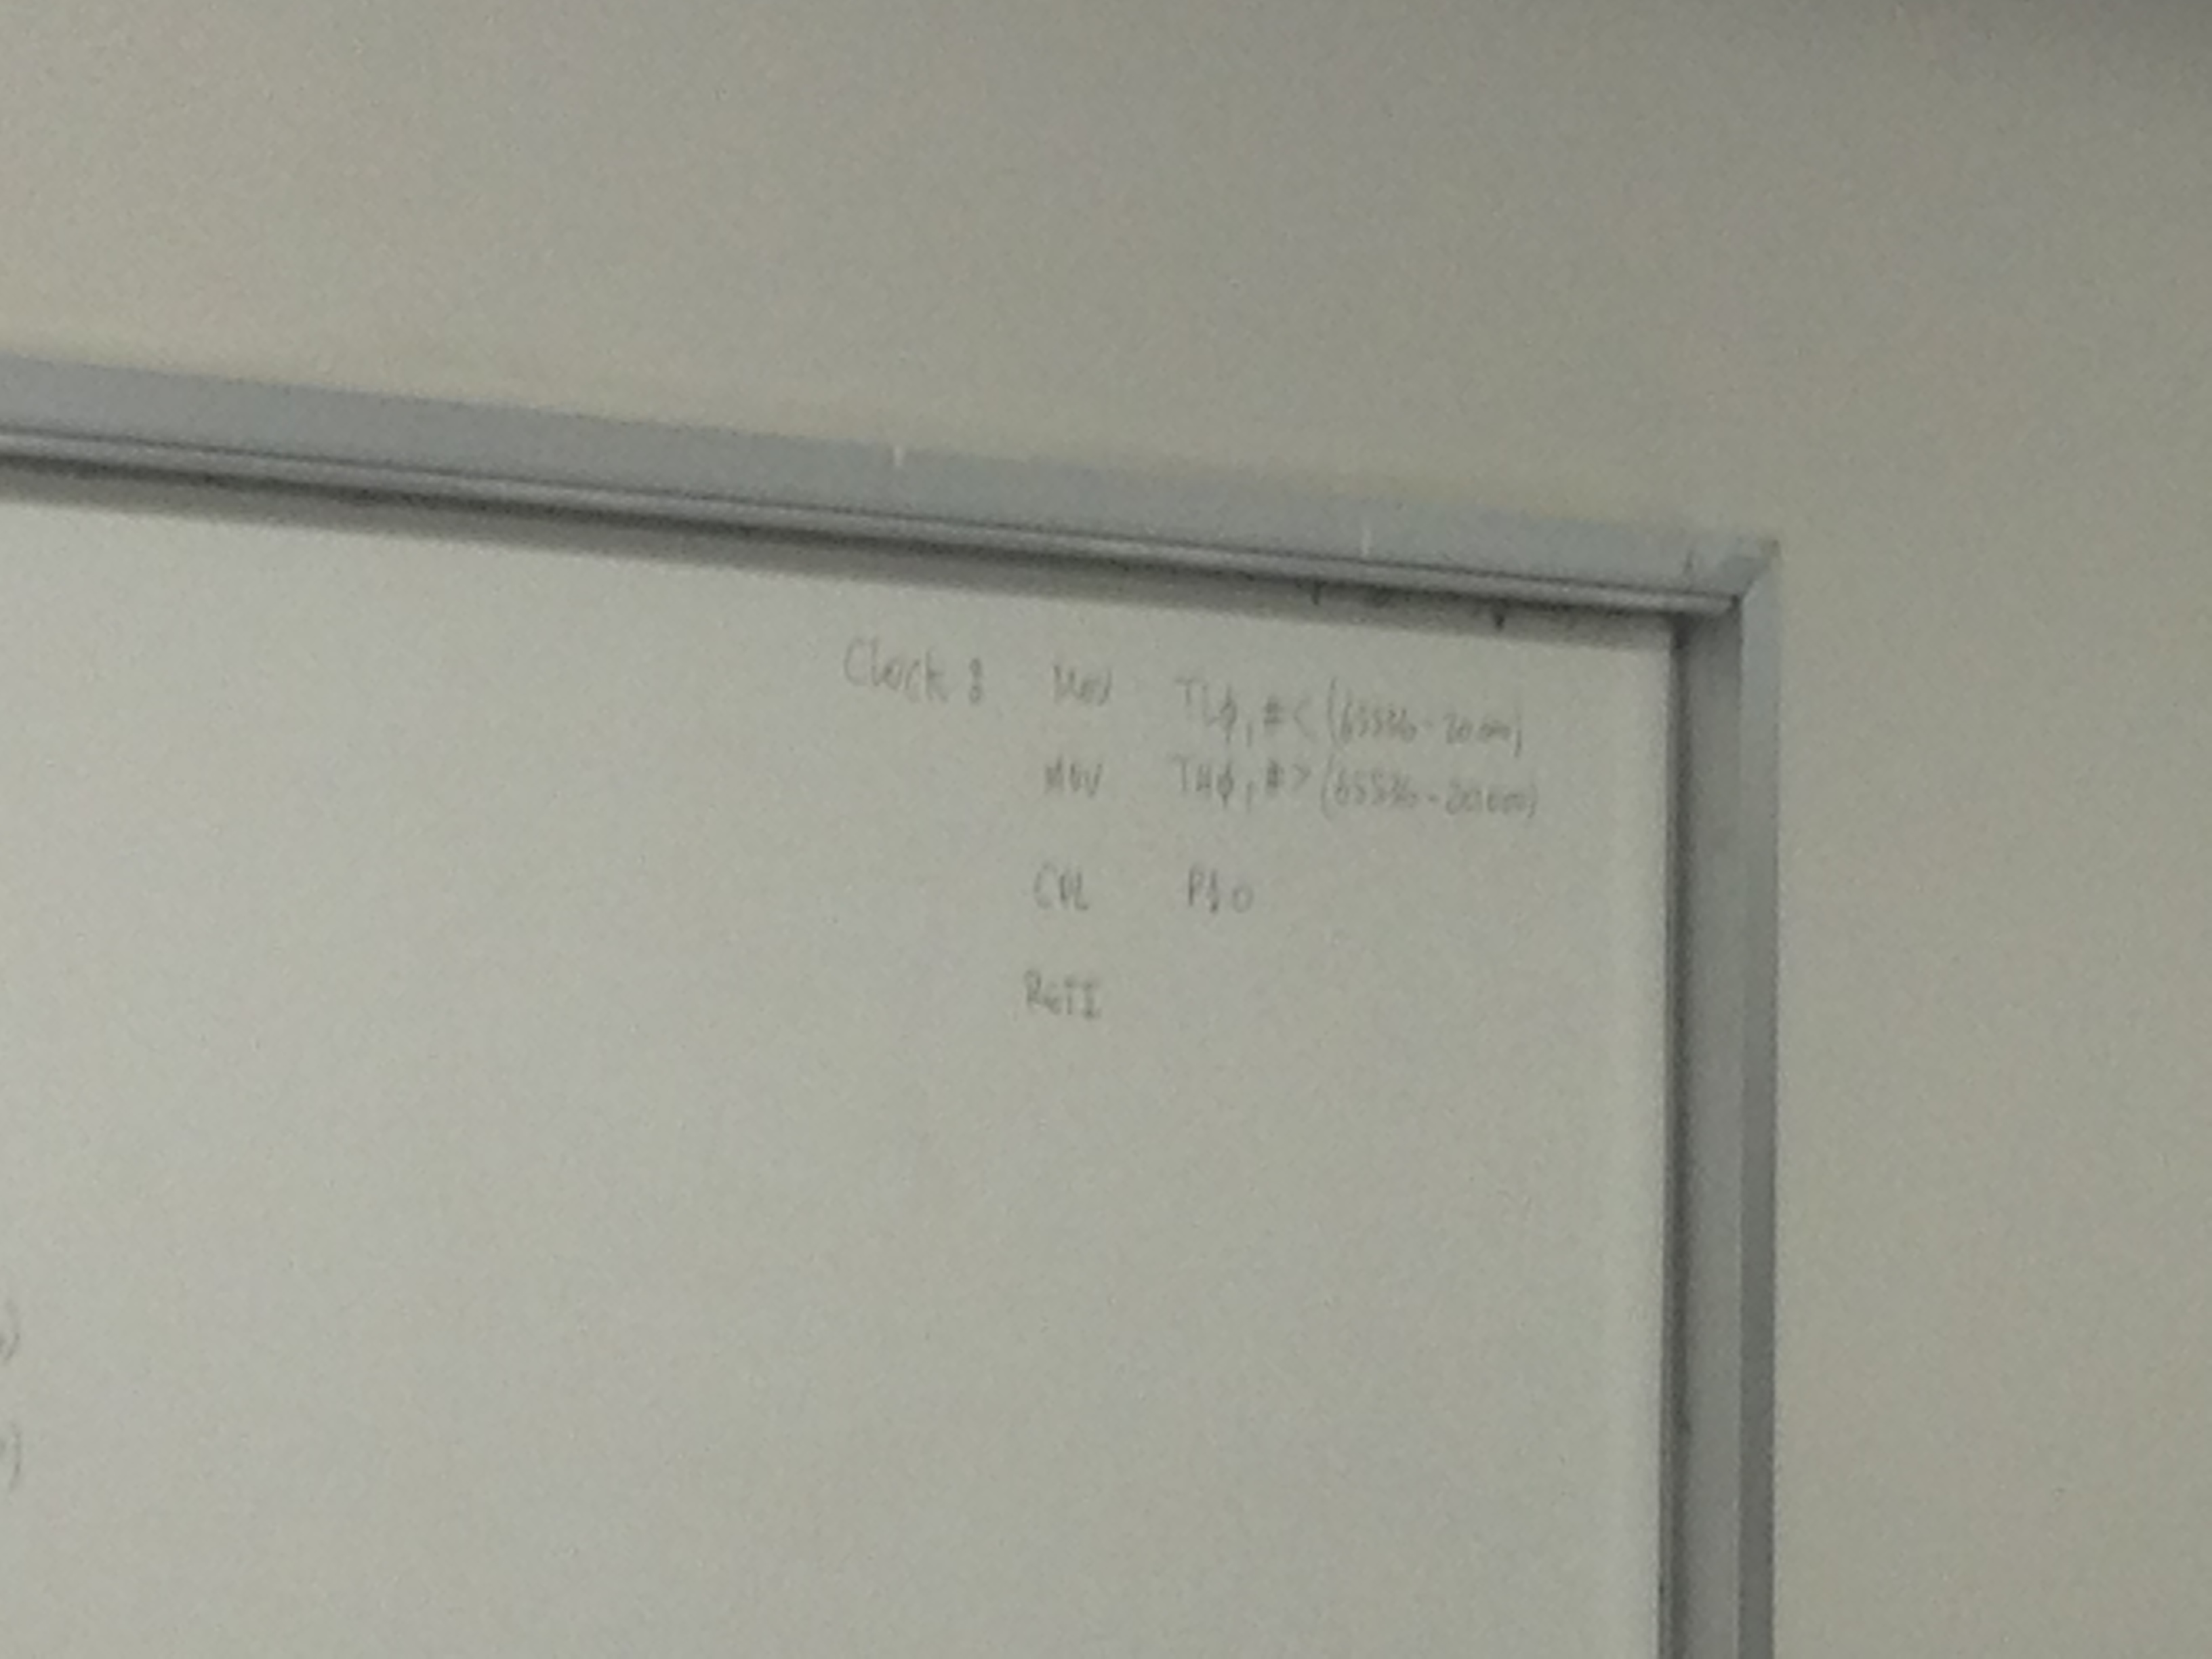 Clock : MOV TLφ, #< (65536-20000)
MOV THφ, #> (65536-20000)
CPL P1.0
RETI